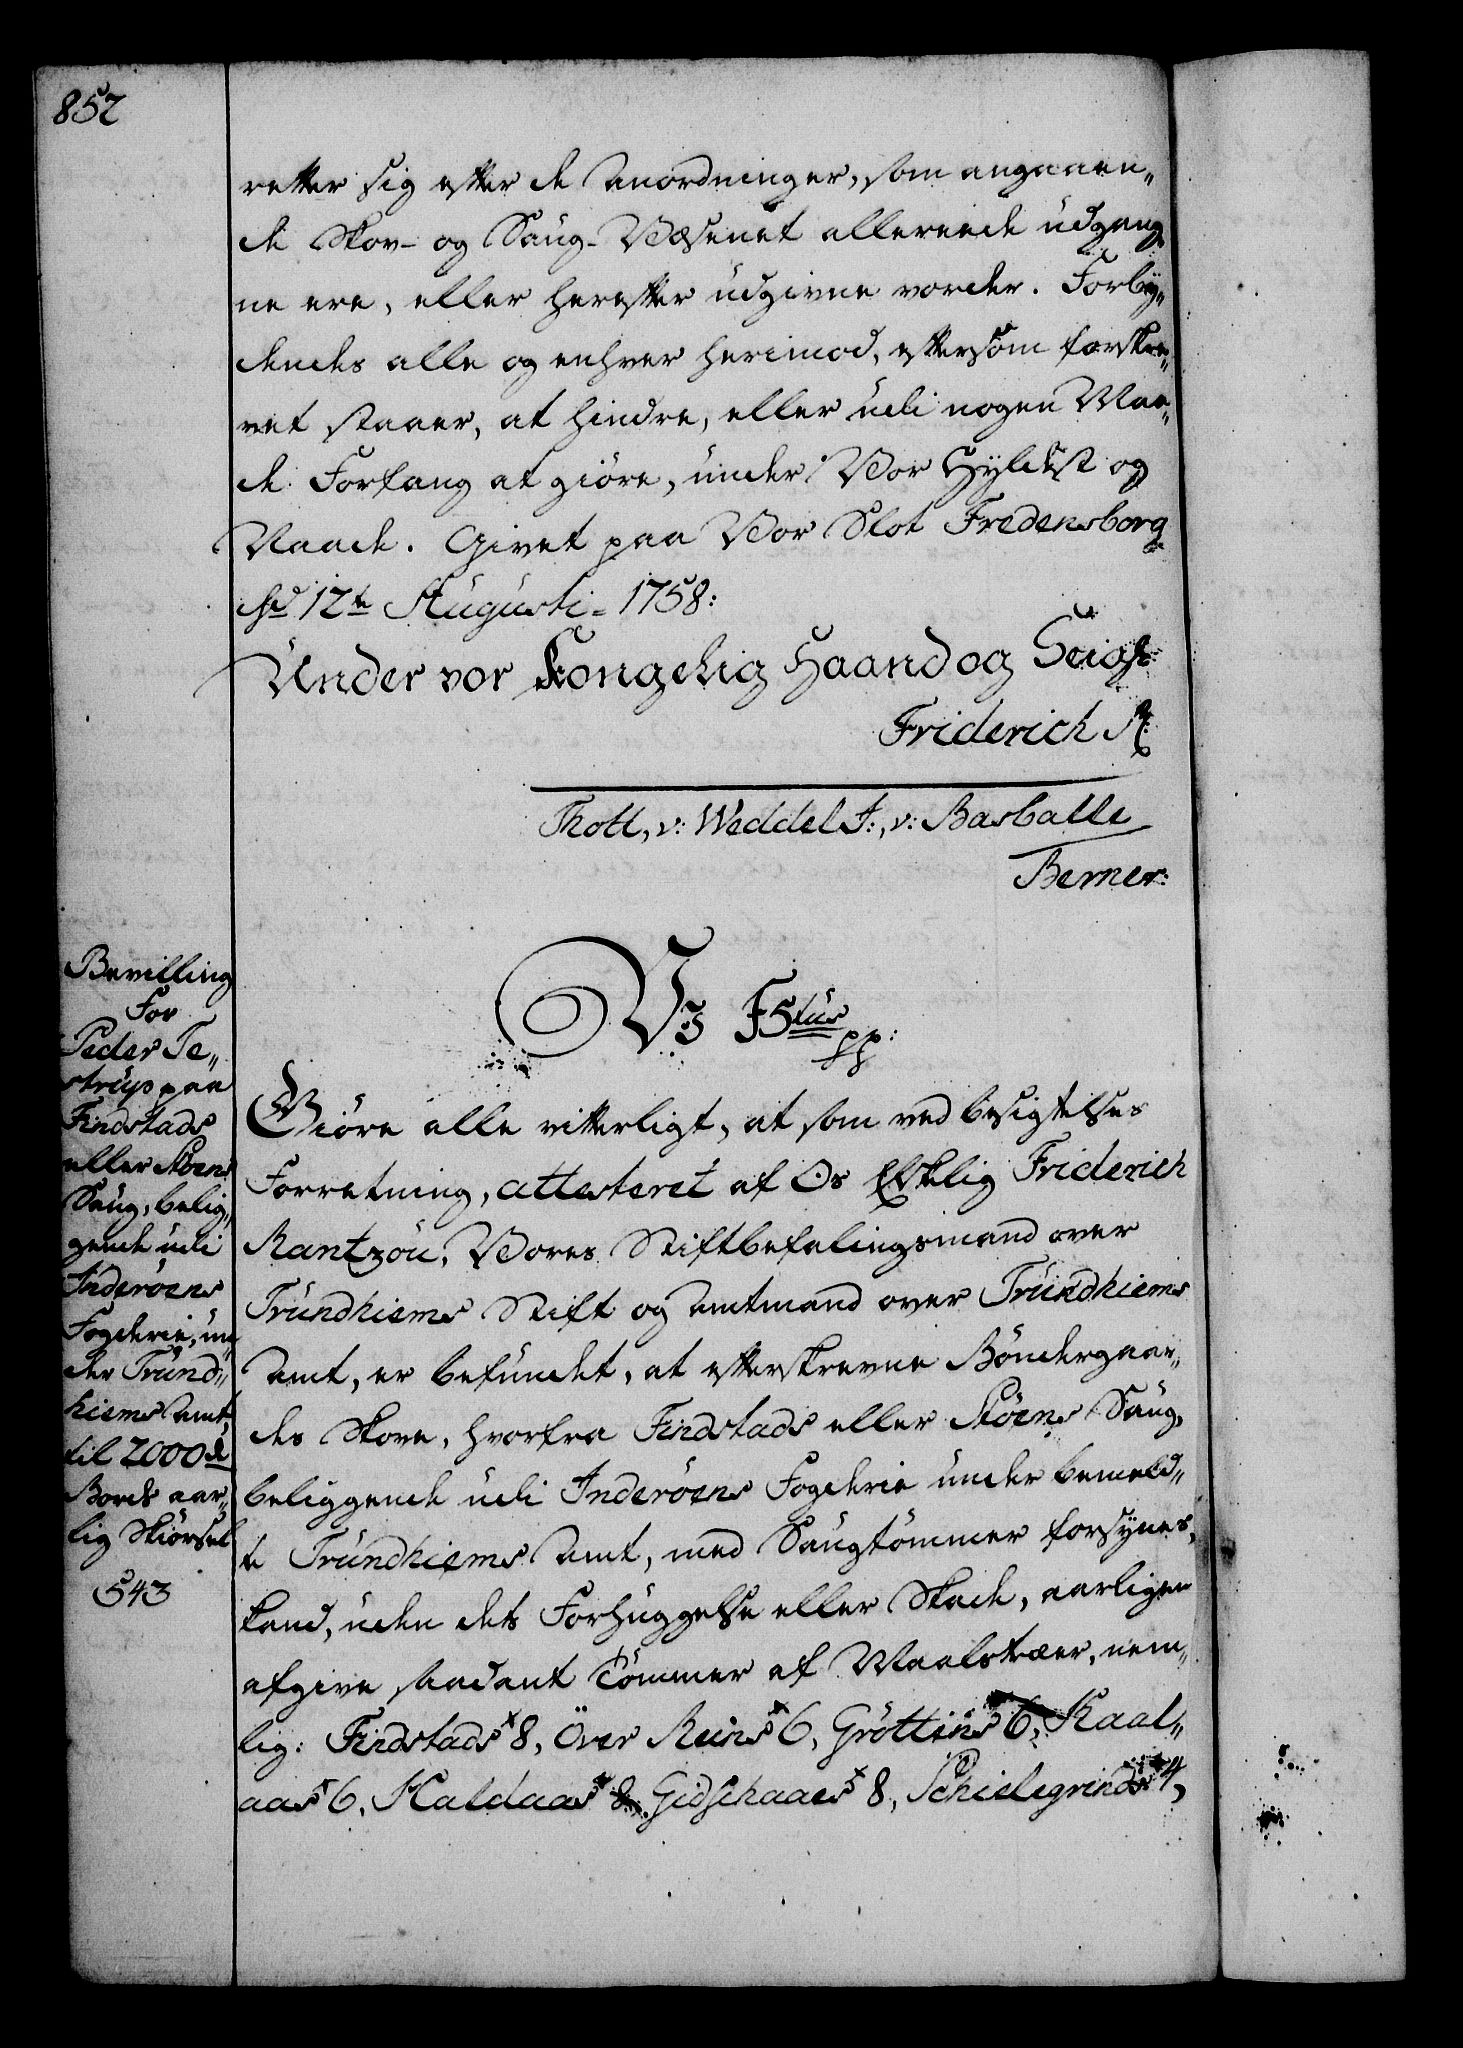 852
retter sig efter de Anordninger, som angaaen„
de Skov- og Saug-Væsenet allereede udgang„
ne ere, eller herefter udgivne vorder. Forby„
dendes alle og enhver herimod, eftersom forskre„
vet staaer, at hindre, eller udi nogen Maa„
de Forfang at giöre, under Vor Hyldest og
Naade. Givet paa Vor Slot Fredensborg
d 12te Augusti 1758:
Under vor Kongelig Haand og Seigl:
Friderich R:
Thott, v: Weddel J:, v: Basballe
Berner:
Bevilling
For
Peder Te„
strup paa
Findstads
eller Skoens
Saug, belig„
gende udi
Inderöens
Fogderie, un„
der Trund„
hiems Amt,
til 2000de
Bords aar„
lig Skiörsel
543
Vi F5tus
pp:
Giöre alle vitterligt, at som ved besigtelses
Forretning, attesteret af Os Elskelig Friderich
Rantzou, Vores Stiftbefalingsmand over
Trundhiems Stift og Amtmand over Trundhiems
Amt, er befundet, at efterskrevne Böndergaar„
des Skove, hvorfra Findstads eller Skoens Saug,
beliggende udi Inderöens Fogderie under bemeld„
te Trundhiems Amt, med Saugtömmer forsynes,
kand, uden dets Forhuggelse eller Skade, aarligen
afgive saadant Tömmer af Maalstræer, nem„
lig: Findstads 8, Över Reins 6, Gröttins 6, Kaal„
aas 6, Haldaas 8, Gidschaaes 8, Schielegrinds 4,